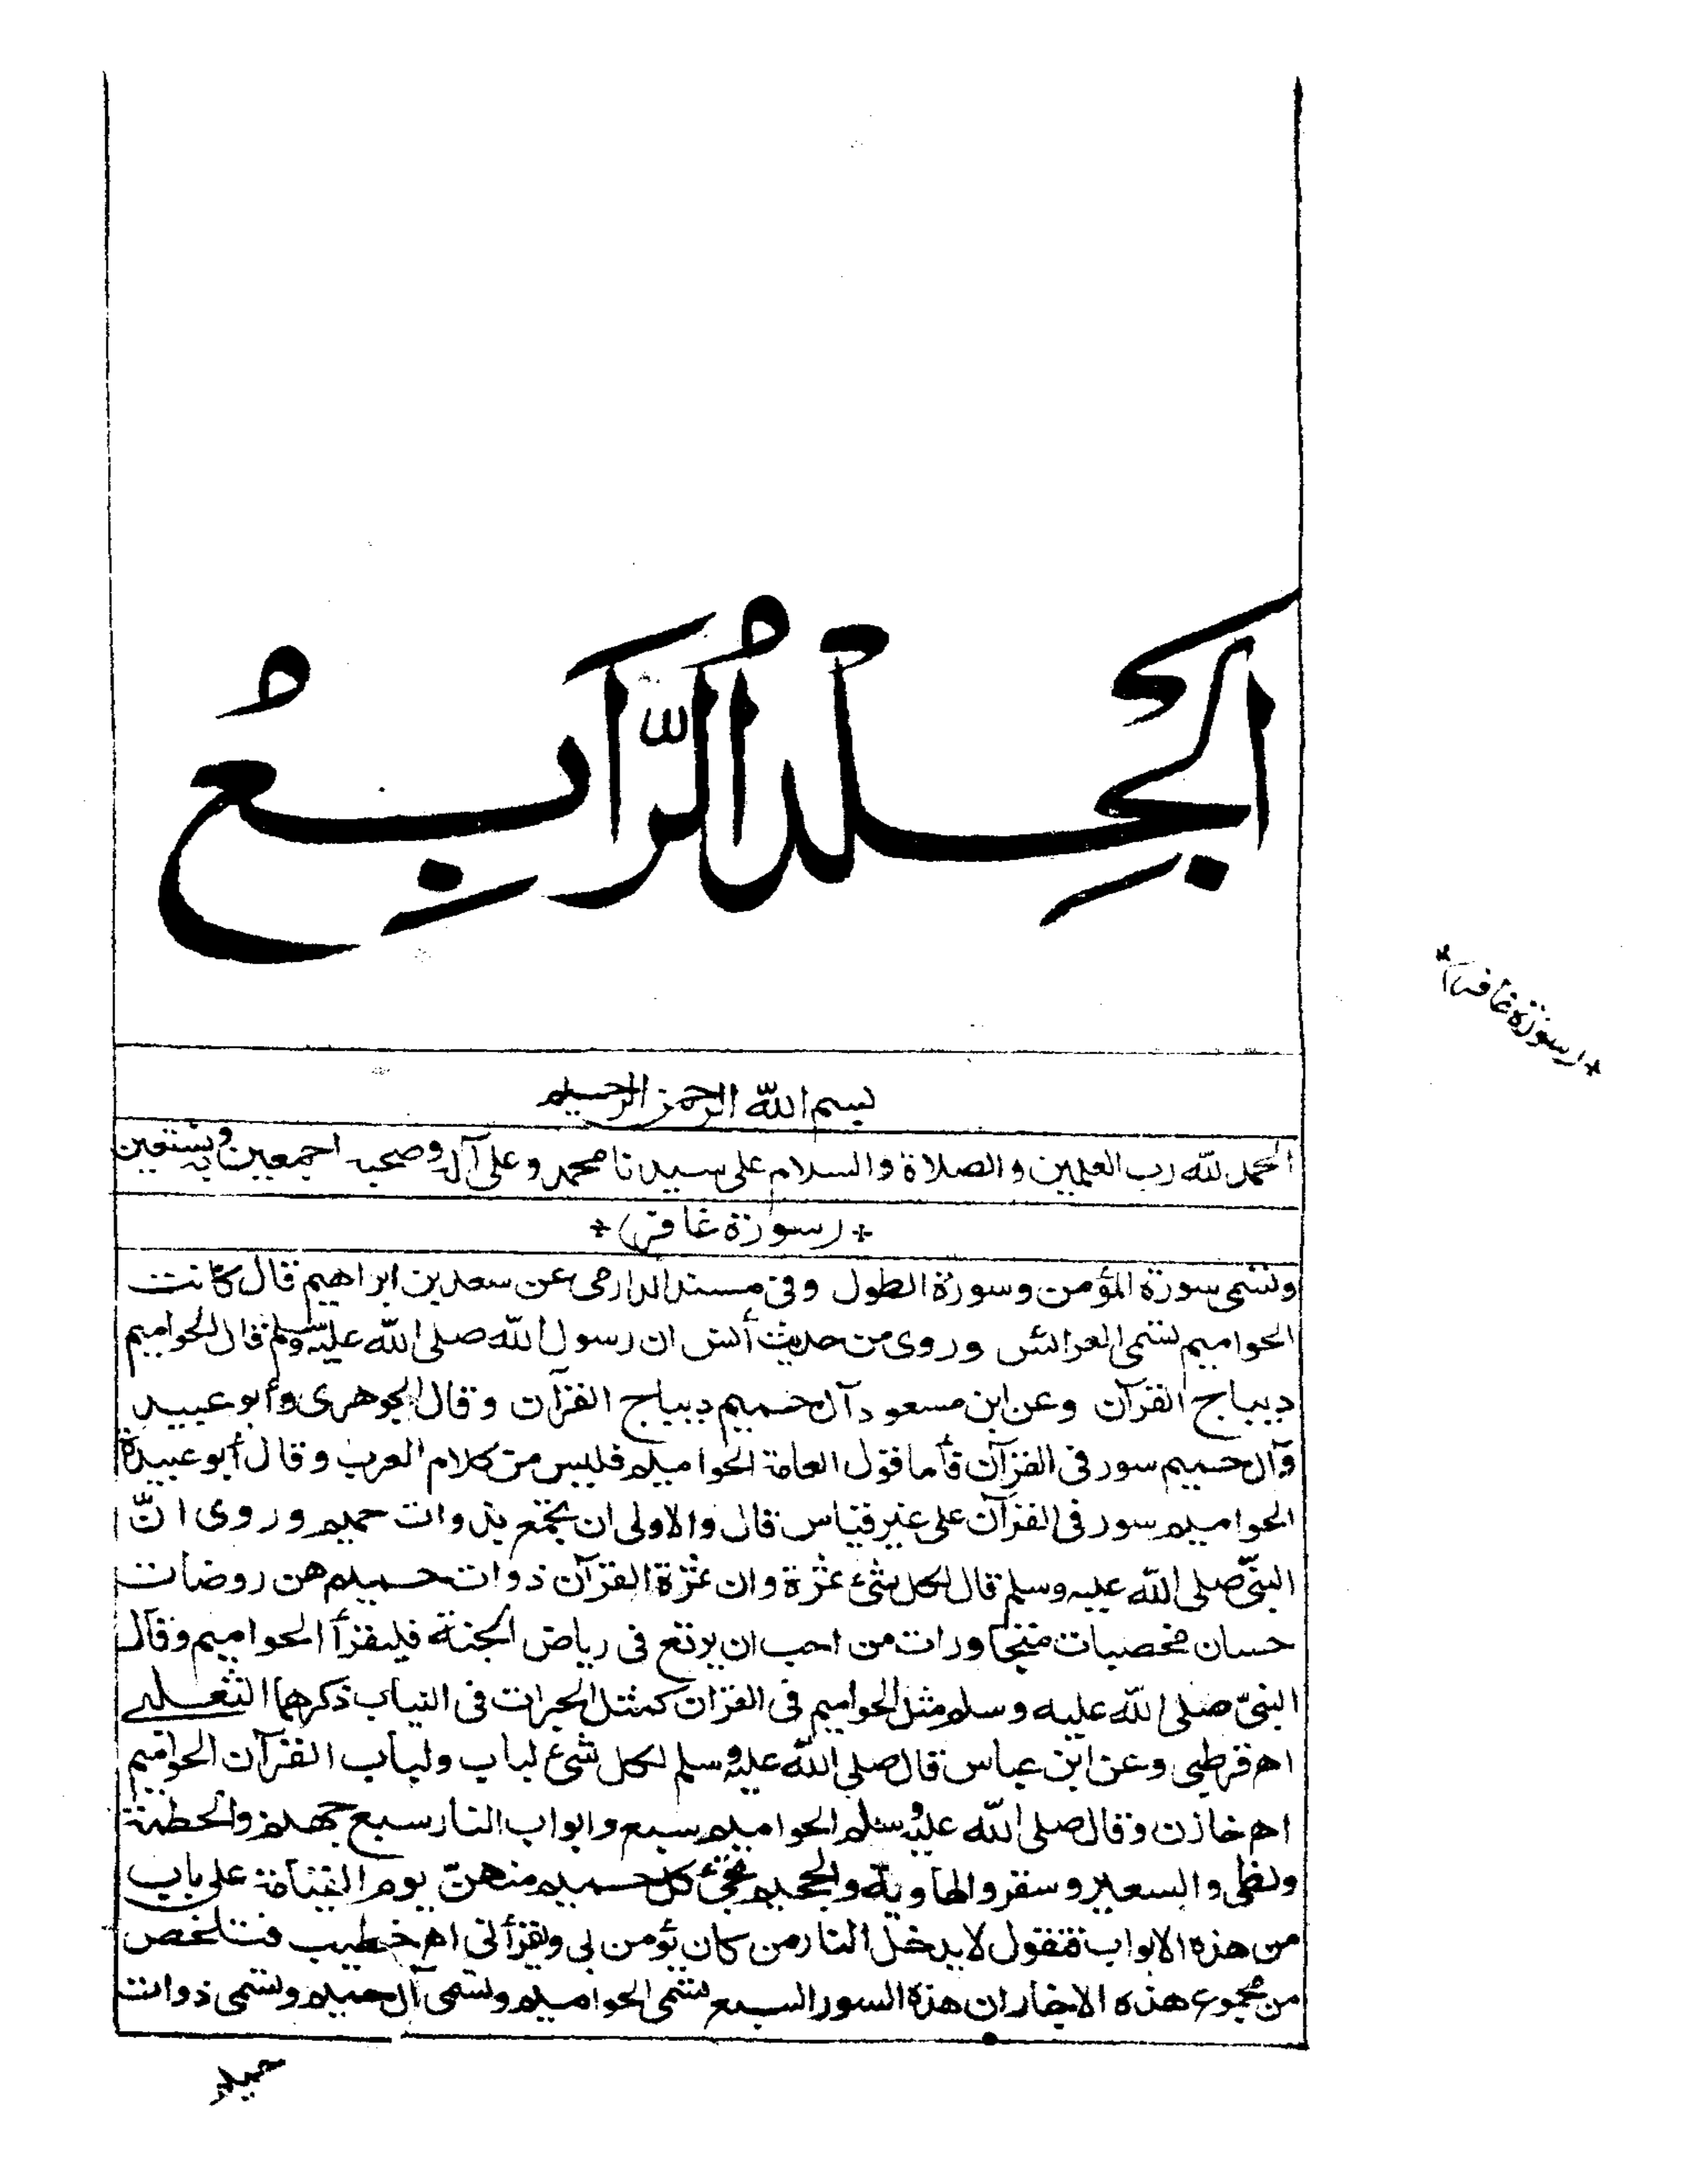 الجِلدُ الرَّابِعُ
*(سورة غافر)*
بسم الله الرحمن الرحيم
الحمد لله رب العلمين والصلاة والسلام على سيدنا محمد وعلى آله وصحبه اجمعين وبه نستعين
*(سورة غافر)*
وتسمى سورة المؤمن وسورة الطول وفى مسند الدارمى عن سعد بن ابراهيم قال كانت
الحواميم تسمى العرائس وروى من حديث أنس ان رسول الله صلى الله عليه وسلم قال الحواميم
ديباج القرآن وعن ابن مسعود آل حميم ديباج القرآن وقال الجوهرى وأبو عبيد
وآل حميم سور فى القرآن فأما قول العامة الحواميم فليس من كلام العرب وقال أبو عبيدة
الحواميم سور فى القرآن على غير قياس قال والاولى ان تجمع بذوات حميم وروى انّ
النبىّ صلى الله عليه وسلم قال لكل شئ ثمرة وان ثمرة القرآن ذوات حميم هن روضات
حسان مخصبات متجاورات من احب ان يرتع فى رياض الجنة فليقرأ الحواميم وقال
النبىّ صلى الله عليه وسلم مثل الحواميم فى القرآن كمثل الحبرات فى الثياب ذكرهما الثعلبى
اهـ قرطبى وعن ابن عباس قال صلى الله عليه وسلم لكل شئ لباب ولباب القرآن الحواميم
اهـ خازن وقال صلى الله عليه وسلم الحواميم سبع وابواب النار سبع جهنم والحطمة
ولظى والسعير وسقر والهاوية والجحيم تجئ كل حميم منهنّ يوم القيامة على باب
من هذه الابواب فتقول لا يدخل النار من كان يؤمن بى ويقرأنى اهـ خطيب فتلخص
من مجموع هذه الاخبار ان هذه السور السبع تسمى الحواميم وتسمى آل حميم وتسمى ذوات
حميم